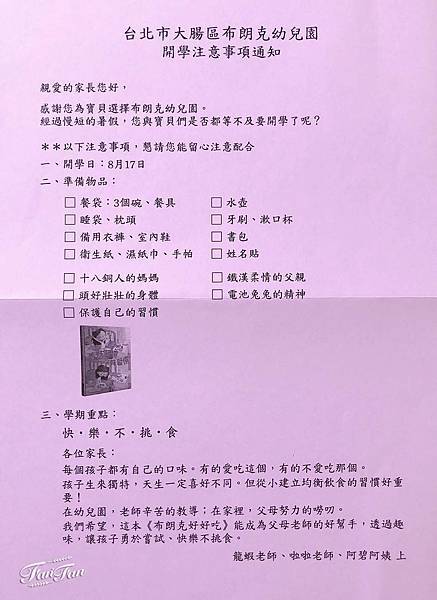 台北市大腸區布朗克幼兒園
開學注意事項通知
親愛的家長您好，
感謝您為寶貝選擇布朗克幼兒園。
經過慢短的暑假，您與寶貝們是否都等不及要開學了呢？
＊＊以下注意事項，懇請您能留心注意配合
一、開學日：8月17日
二、準備物品：
□ 餐袋：3個碗、餐具 □ 水壺
□ 睡袋、枕頭 □ 牙刷、漱口杯
□ 備用衣褲、室內鞋 □ 書包
□ 衛生紙、濕紙巾、手帕 □ 姓名貼
□ 十八銅人的媽媽 □ 鐵漢柔情的父親
□ 頭好壯壯的身體 □ 電池兔兔的精神
□ 保護自己的習慣
三、學期重點：
快・樂・不・挑・食
各位家長：
每個孩子都有自己的口味。有的愛吃這個，有的不愛吃那個。
孩子生來獨特，天生一定喜好不同。但從小建立均衡飲食的習慣好重
要！
在幼兒園，老師辛苦的教導；在家裡，父母努力的嘮叨。
我們希望，這本《布朗克好好吃》能成為父母老師的好幫手，透過趣
味，讓孩子勇於嘗試、快樂不挑食。
龍蝦老師、啦啦老師、阿碧阿姨 上
FunFan